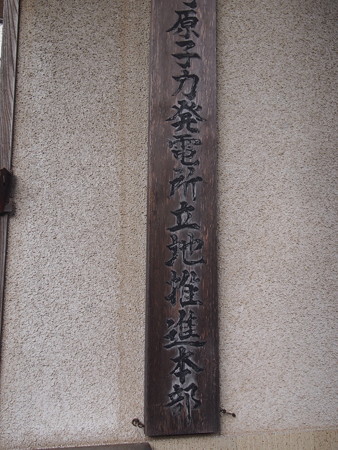 原子力発電所立地推進本部